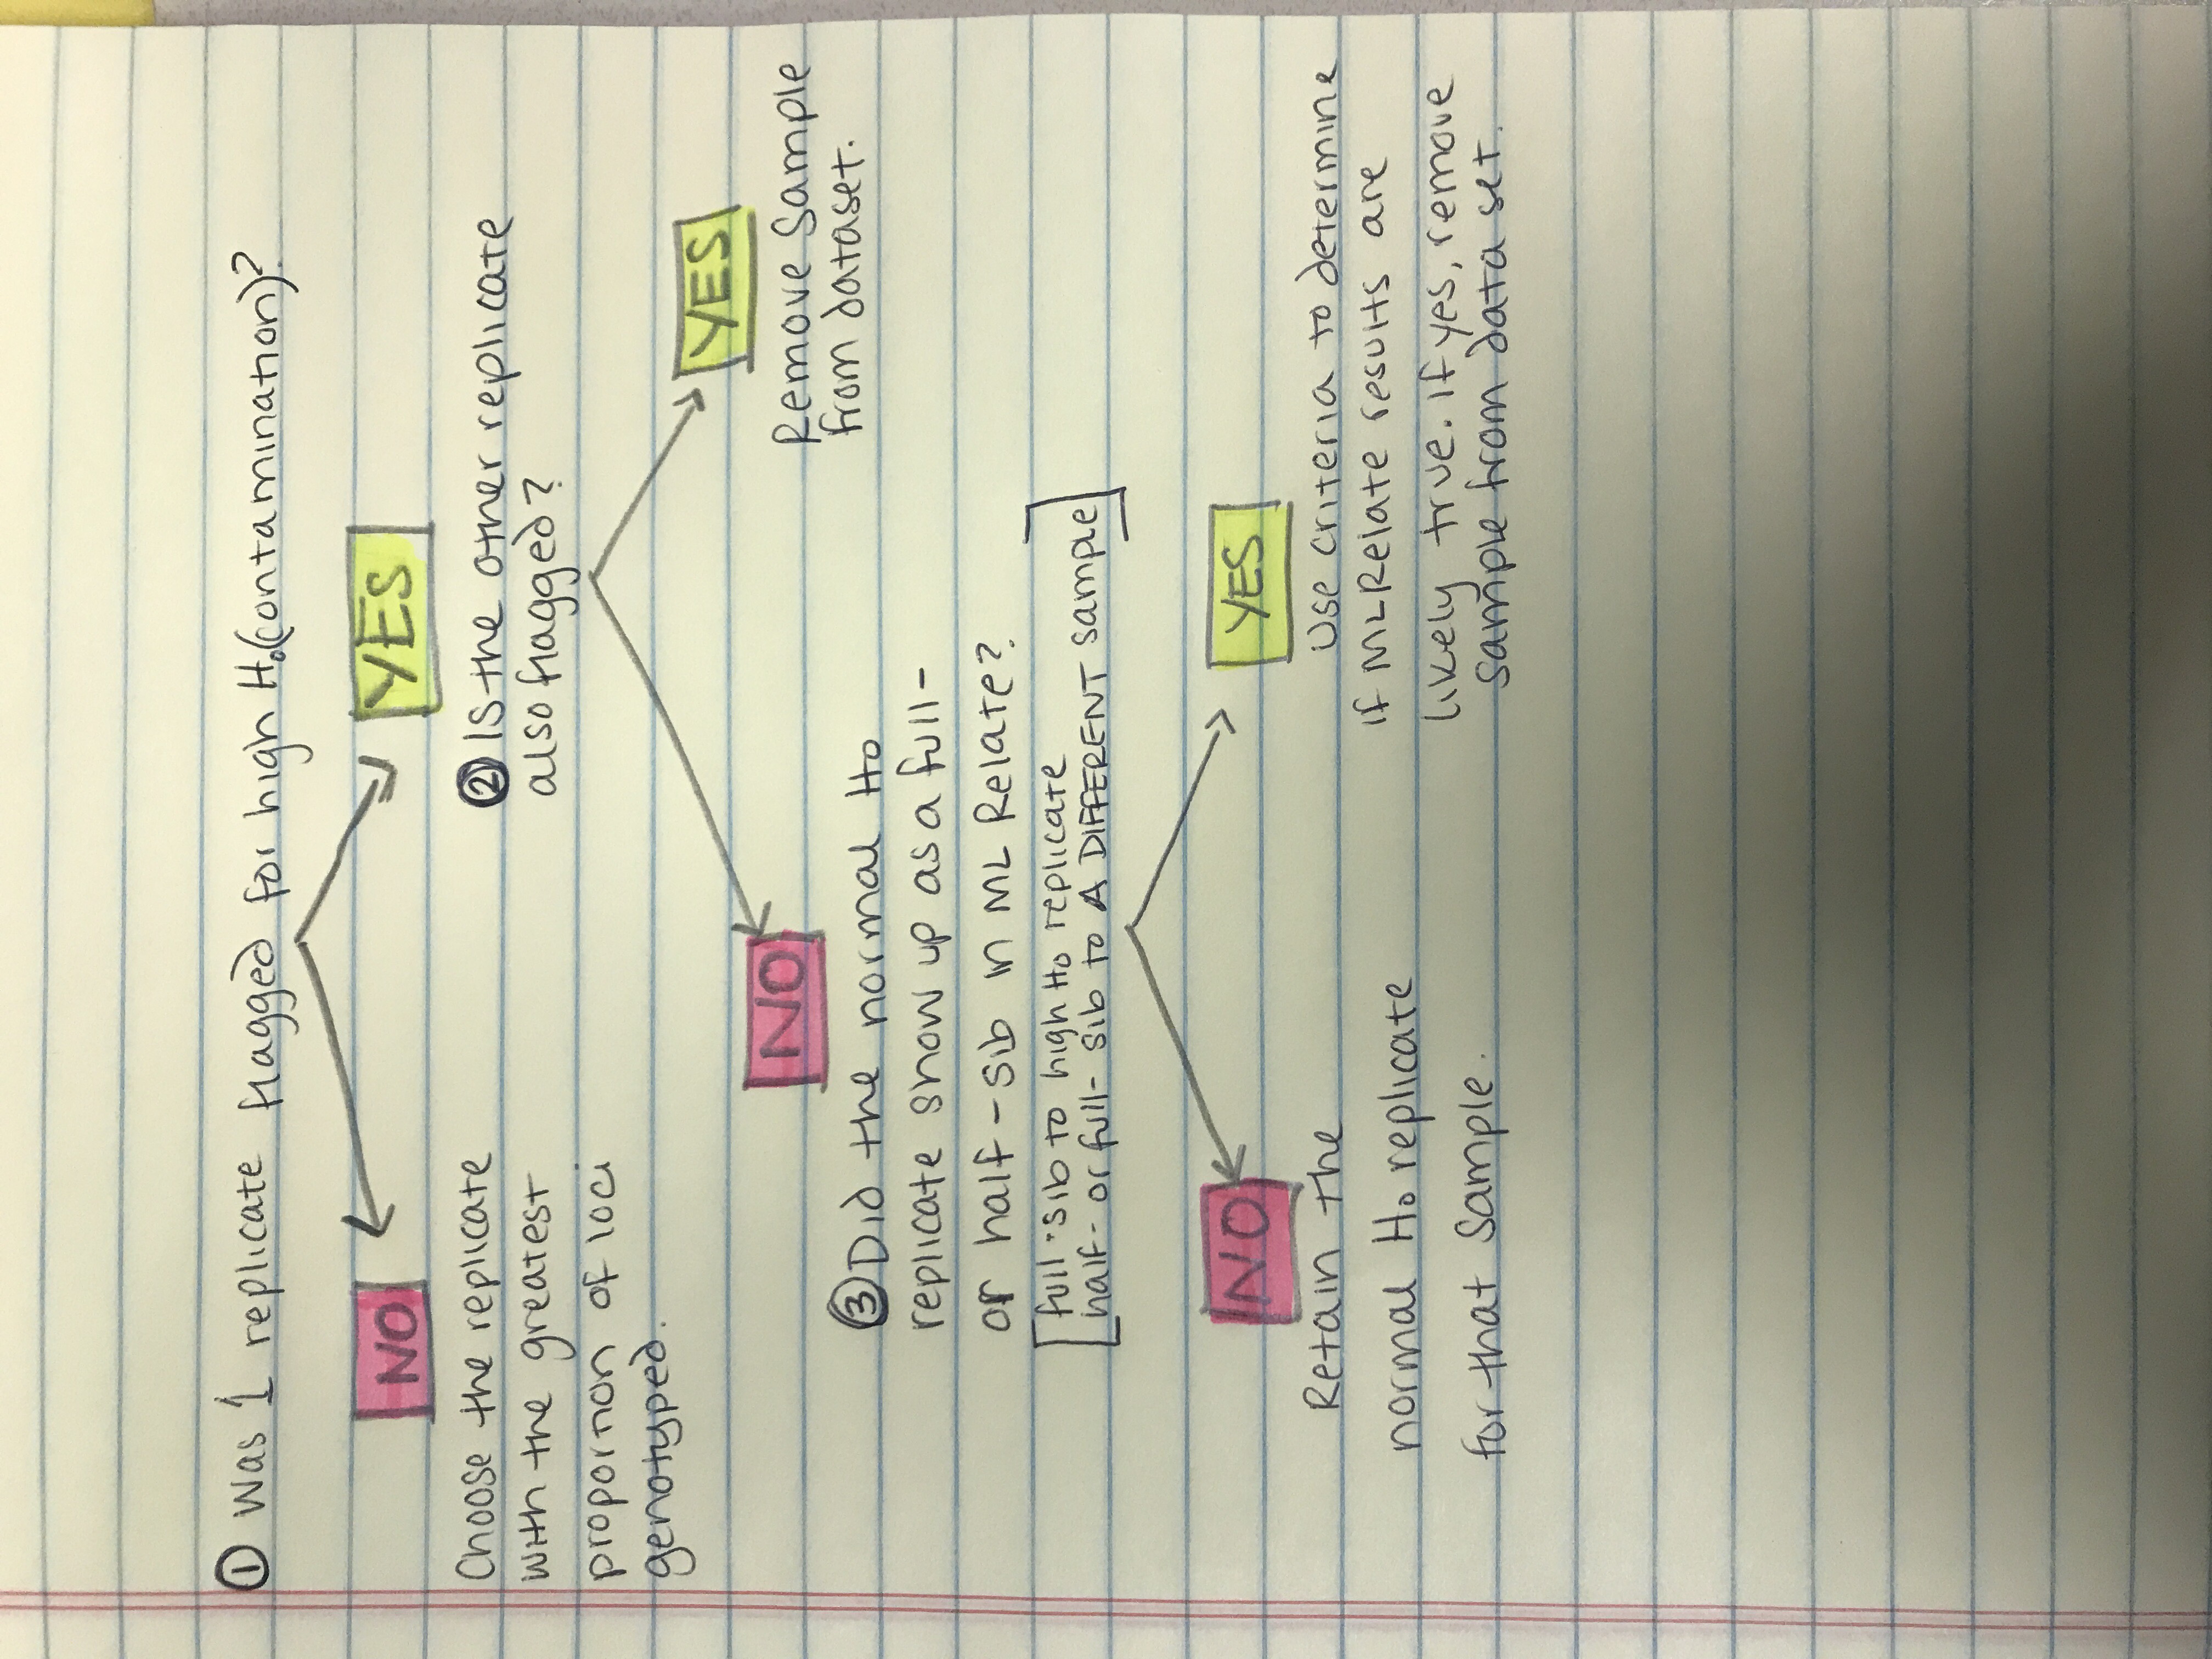 ① Was 1 replicate flagged for high Ho (contamination)?
NO
YES
Choose the replicate
with the greatest
proportion of loci
genotyped.
② Is the other replicate
also flagged?
NO
YES
Remove Sample
from dataset.
③ Did the normal Ho
replicate show up as a full-
or half-sib in ML Relate?
[full-sib to high Ho replicate
half- or full- sib to A DIFFERENT sample]
NO
YES
Retain the
normal Ho replicate
for that Sample.
Use criteria to determine
if MLRelate results are
likely true. If yes, remove
sample from data set.